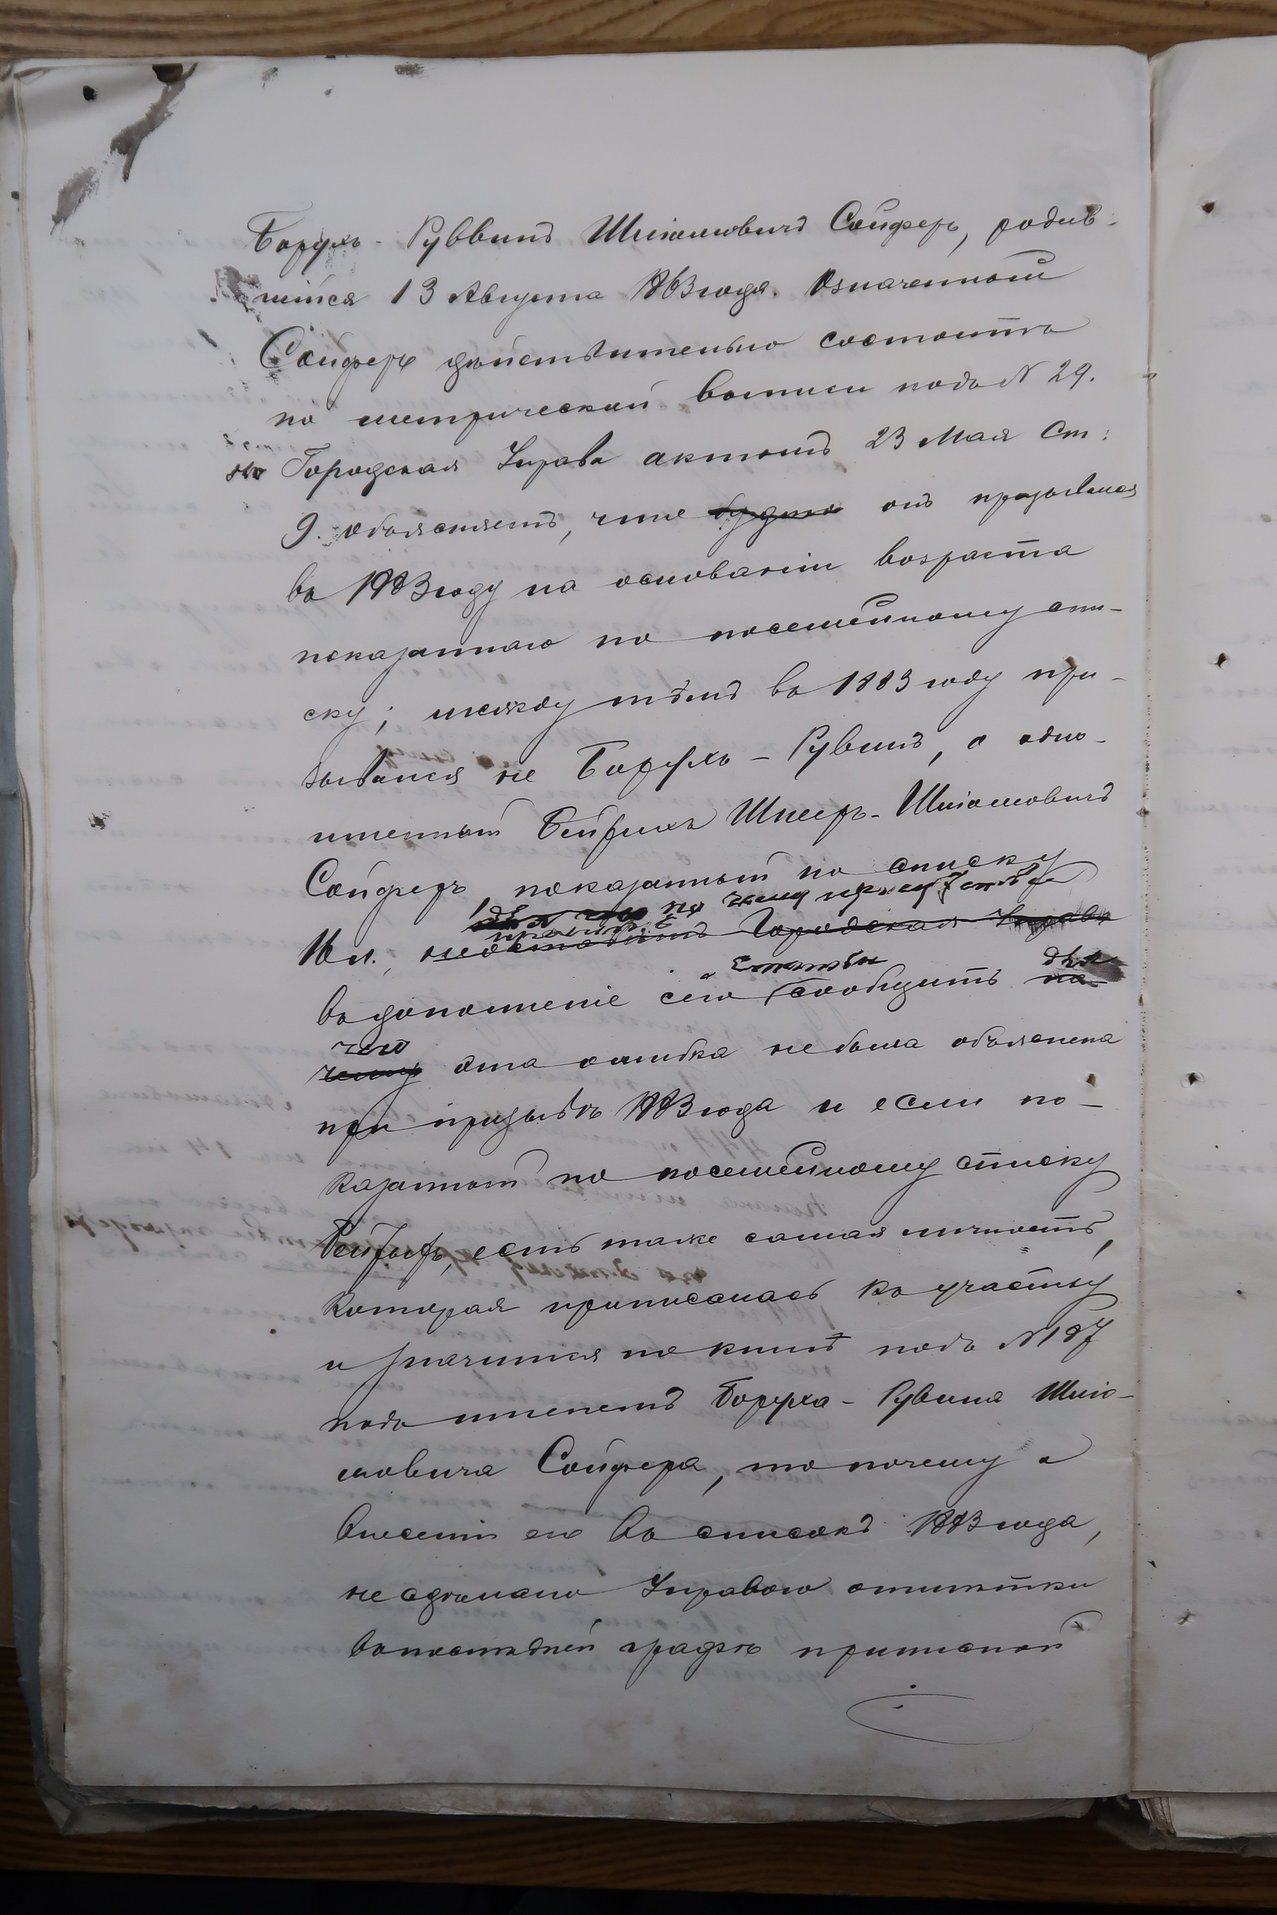 Борухъ - Руввинъ Шліомовичъ Сойферъ, родив-
шійся 13 Августа 1863 года. Означенный
Сойферъ действительно состоитъ
по метрической выписи подъ N 29.
но Городская Управа актомъ 23 Мая ст:
9. объясняетъ, что будто онъ призывался
въ 1883 году на основаніи возраста
показаннаго по посемейному спи-
ску; между тѣмъ въ 1883 году при-
зывался не Борухъ - Рувинъ, а одно-
именный Бейрихъ Шмеръ - Шліомовичъ
Сойферъ, показанный по списку
по чему
16 л., Городская Управа
статьи для
въ дополненіе сего сообщить по-
чего
чему эта ошибка не была объяснена
при призывѣ 1883 года и если по-
казанный по посемейному списку
есть таже самая личность,
которая приписалась къ участку
и значится по книгѣ подъ N 187
подъ именемъ Боруха - Рувина Шліо-
мовича Сойфера, то почему о
внесеніи его въ списокъ 1883 года,
не сдѣлано Управою отмѣтки
въ послѣдней графѣ приписной